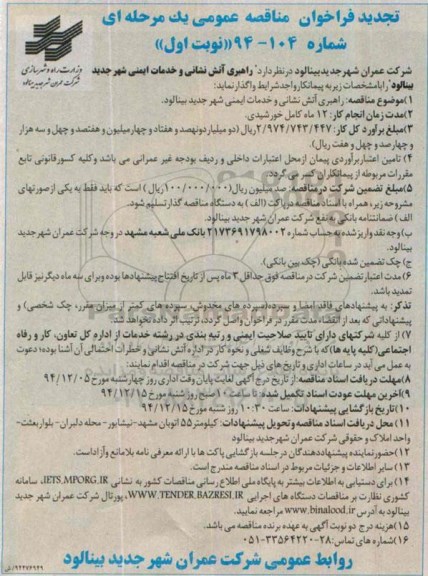 تجدید فراخوان مناقصه عمومی یک مرحله ای
شماره ۱۰۴-۹۴ «(نوبت اول)»
وزارت راه و شهرسازی
شرکت عمران شهر جدید بینالود
شرکت عمران شهر جدید بینالود در نظر دارد" راهبری آتش نشانی و خدمات ایمنی شهر جدید
بینالود" را با مشخصات زیر به پیمانکار واجد شرایط واگذار نماید:
۱)موضوع مناقصه: راهبری آتش نشانی و خدمات ایمنی شهر جدید بینالود.
۲)مدت زمان انجام کار: ۱۲ ماه کامل خورشیدی.
۳)مبلغ برآورد کل کار: ۲/۹۷۴/۷۴۳/۴۴۷ریال (دو میلیارد و نهصد و هفتاد و چهار میلیون و هفتصد و چهل و سه هزار
و چهارصد و چهل و هفت ریال)
۴) تامین اعتبار برآوردی پیمان از محل اعتبارات داخلی و ردیف بودجه غیر عمرانی می باشد و کلیه کسور قانونی تابع
مقررات مربوطه از پیمانکاران کسر می گردد.
۵)مبلغ تضمین شرکت در مناقصه: صد میلیون ریال(۱۰۰/۰۰۰/۰۰۰ریال) است که باید فقط به یکی از صورتهای
مشروحه زیر، همراه با اسناد مناقصه در پاکت (الف) به دستگاه مناقصه گذار تسلیم شود.
الف) ضمانتنامه بانکی به نفع شرکت عمران شهر جدید بینالود.
ب) وجه نقد واریز شده به حساب شماره ۲۱۷۳۶۹۱۷۹۸۰۰۲ بانک ملی شعبه مشهد در وجه شرکت عمران شهر جدید
بینالود.
ج) چک تضمین شده بانکی (چک بین بانکی).
۶)مدت اعتبار تضمین شرکت در مناقصه فوق حداقل ۳ ماه پس از تاریخ افتتاح پیشنهادها بوده و برای سه ماه دیگر نیز قابل
تمدید باشد.
تذکر: به پیشنهادهای فاقد امضا و سپرده(سپرده های مخدوش، سپرده های کمتر از میزان مقرر، چک شخصی) و
پیشنهاداتی که بعد از انقضاء مدت مقرر در فراخوان واصل گردد، ترتیب اثر داده نخواهد شد.
۷) از کلیه شرکتهای دارای تایید صلاحیت ایمنی و رتبه بندی در رشته خدمات از اداره کل تعاون، کار و رفاه
اجتماعی(کلیه پایه ها)که با شرح وظایف شغلی و نحوه کار در اداره آتش نشانی و خطرات احتمالی آن آشنا بوده؛ دعوت
به عمل می آید در ساعات اداری و تاریخ های ذیل جهت شرکت در مناقصه اقدام نمایند:
۸)مهلت دریافت اسناد مناقصه:از تاریخ درج آگهی لغایت پایان وقت اداری روز چهارشنبه مورخ ۹۴/۱۲/۰۵
۹)آخرین مهلت عودت اسناد تکمیل شده: تا ساعت ۱۰ صبح روز شنبه مورخ ۹۴/۱۲/۱۵
۱۰)تاریخ بازگشایی پیشنهادات: ساعت ۱۰:۳۰ روز شنبه مورخ ۹۴/۱۲/۱۵
۱۱) محل دریافت اسناد مناقصه و تحویل پیشنهادات: کیلومتر ۵۵ اتوبان مشهد-نیشابور- محله دلبران- بلوار بعثت-
واحد املاک و حقوقی شرکت عمران شهر جدید بینالود
۱۲)حضور نماینده پیشنهاد دهندگان در جلسه بازگشایی پاکت ها با ارائه معرفی نامه بلامانع و آزاد است.
۱۳) سایر اطلاعات و جزئیات مربوط در اسناد مناقصه مندرج است.
۱۴) برای دستیابی به اطلاعات بیشتر به پایگاه ملی اطلاع رسانی مناقصات کشور به نشانی IETS.MPORG.IR، سامانه
کشوری نظارت بر مناقصات دستگاه های اجرایی WWW.TENDER.BAZRESI.IR، پورتال شرکت عمران شهر جدید
بینالود به آدرس www.binalood.ir مراجعه نمایید.
۱۵)هزینه درج دو نوبت آگهی به عهده برنده مناقصه می باشد.
۱۶)شماره های تماس: ۲۸-۳۳۵۶۴۲۲۰-۰۵۱
روابط عمومی شرکت عمران شهر جدید بینالود